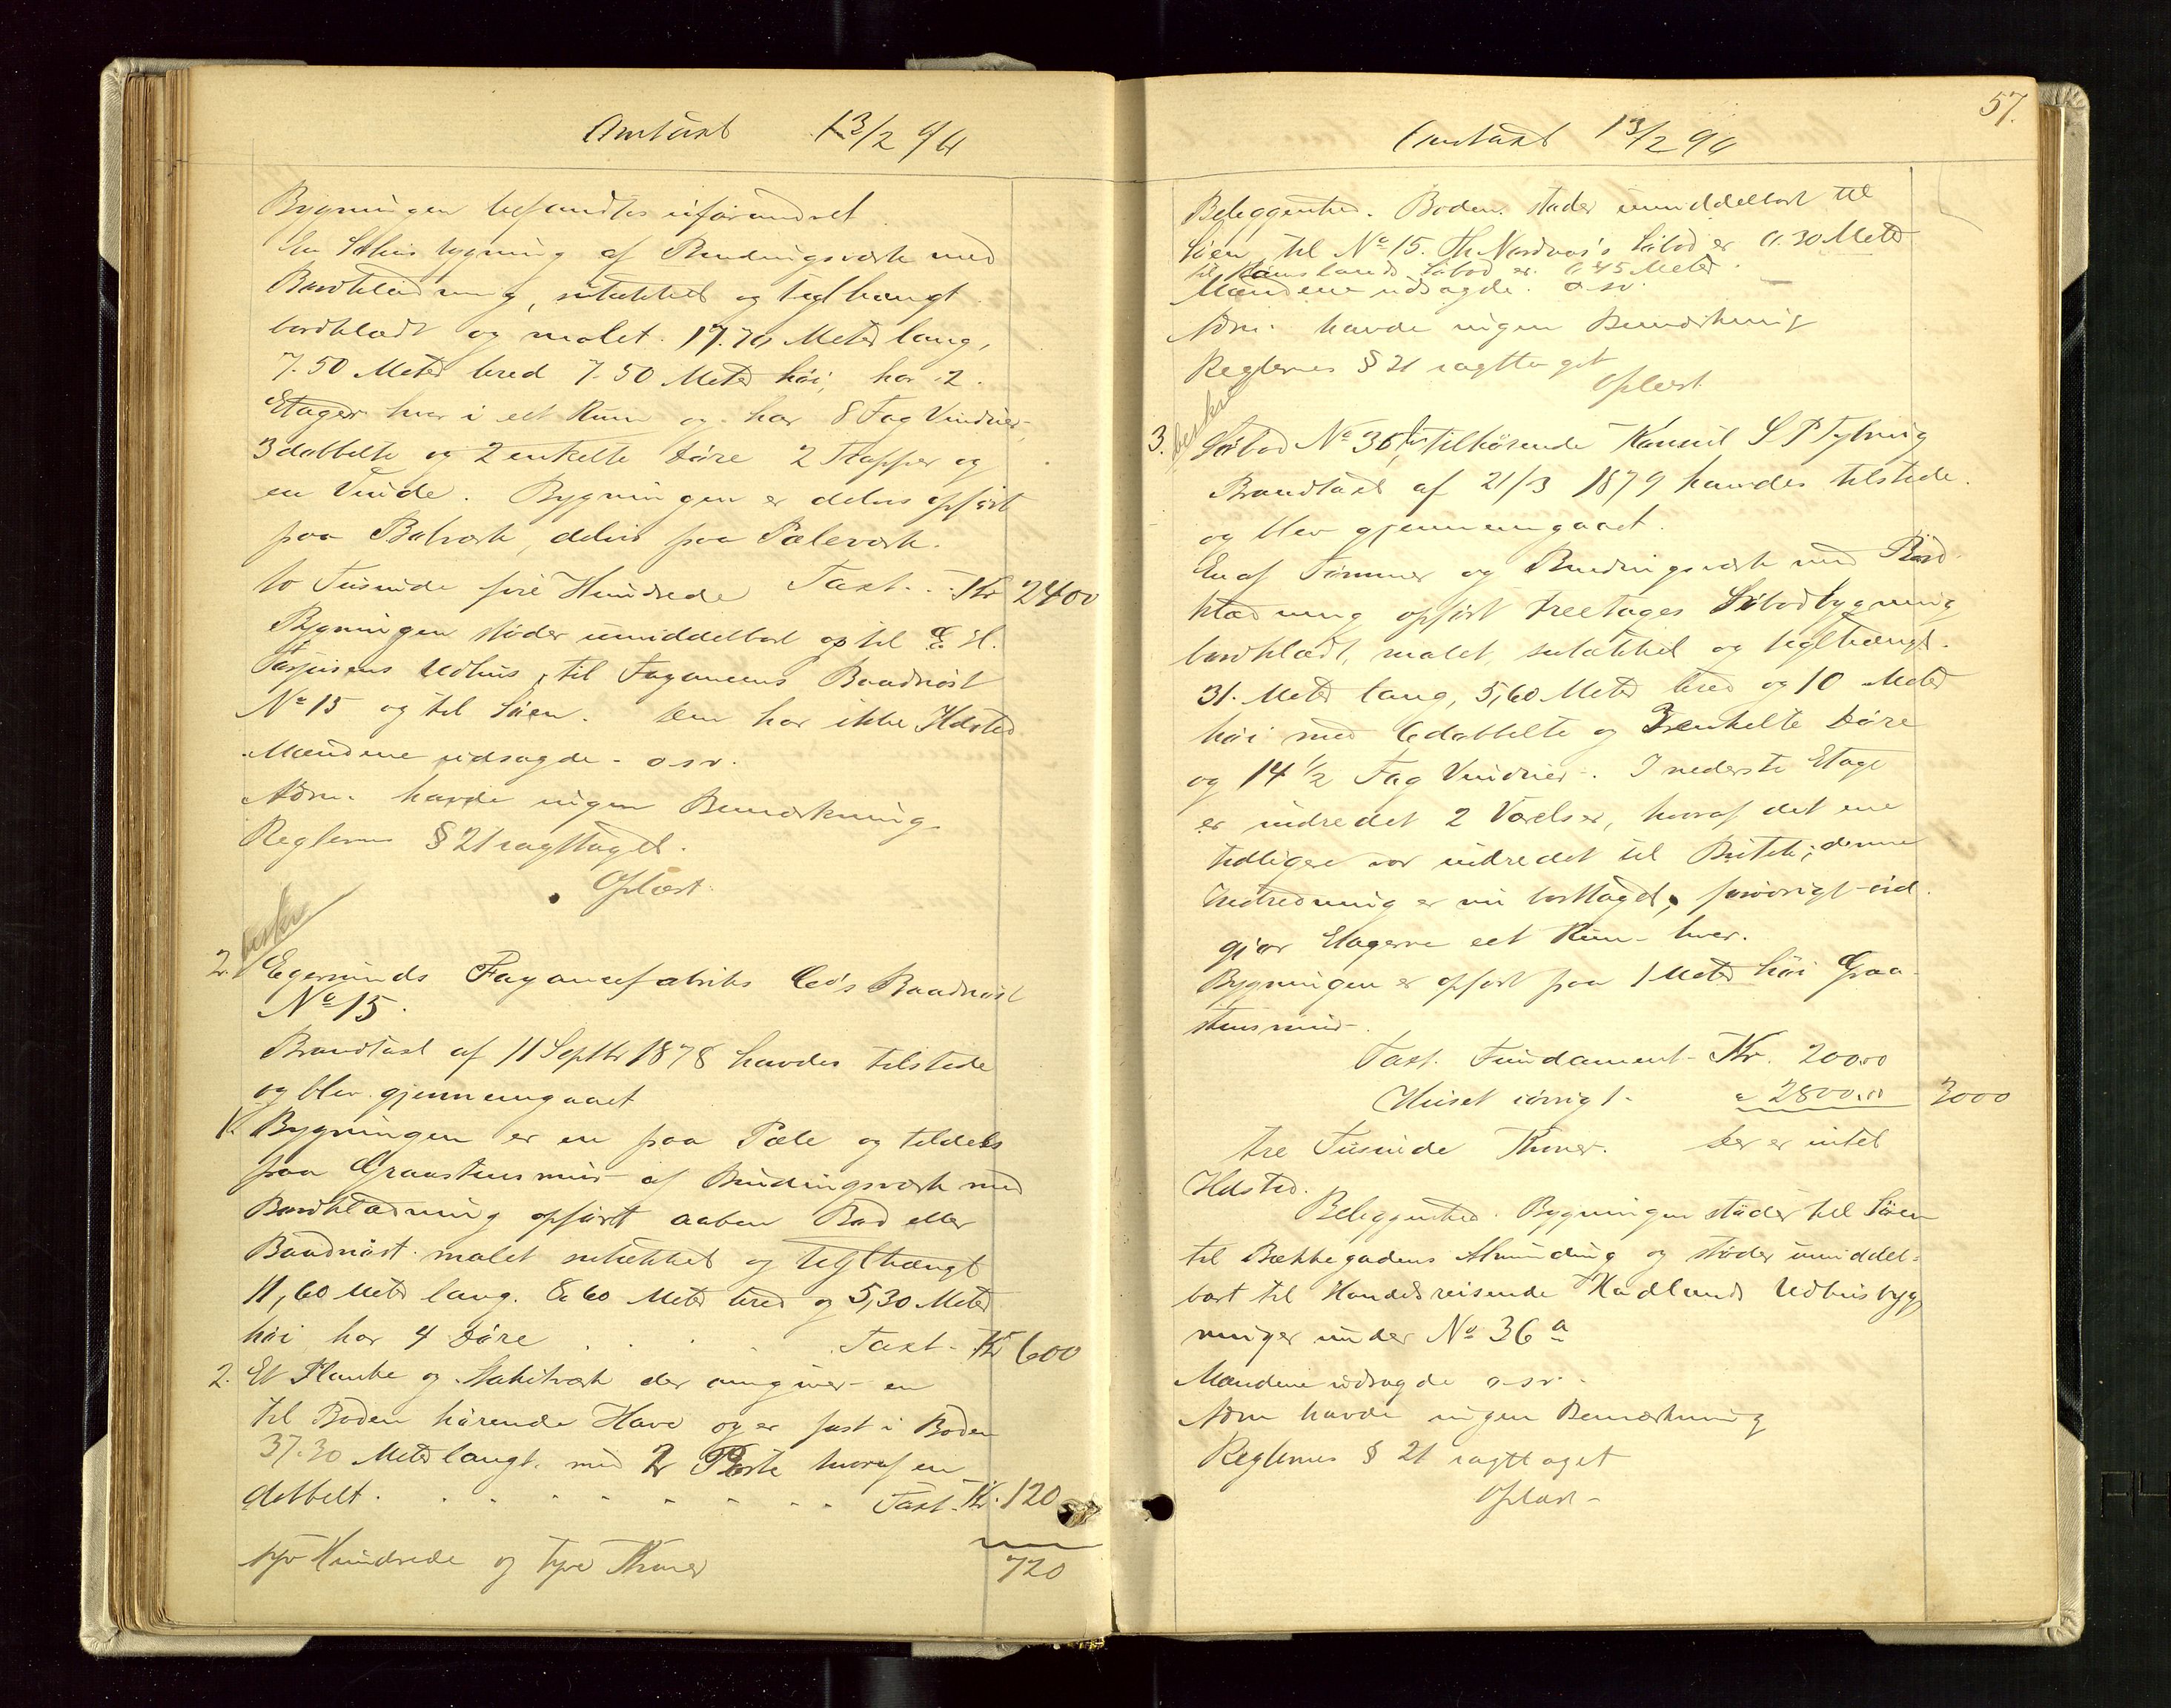 Omtaxt 13/2 94
Bygningen befandtes uforandret
En Søhusbygning af Bindingsværk med
Bordklædning, sutækket og teglhængt
bordklædt og malet. 17.70 Meter lang,
7.50 Meter bred 7.50 Meter høi, har 2
Etager hver i eet Rum og har 8 Fag Vinduer,
3 dobbelte og 2 enkelte Døre 2 Trapper og
en Vinde. Bygningen er delvis opført
paa Bolværk, delvis paa Pæleværk.
to Tusinde fire Hundrede Taxt. Kr 2400
Bygningen støder umiddelbart op til
Udhus, til Fayancens Baadnøst
No 15 og til Søen. Den har ikke Ildsted
Mændene udsagde. o.s.v.
Adm. havde ingen Bemærkning
Reglernes § 21 iagttaget.
Oplæst.
beskr
2. Egersunds Fayancefabriks Co's Baadnøst
No 15.
Brandtaxt af 11 Septbr 1878 havdes tilstede
og blev gjennemgaaet
1. Bygningen er en paa Pæle og tildels
paa Graastensmur af Bindingsværk med
Bordklædning opført aaben Bod eller
Baadnøst malet sutækket og teglhængt
11,60 Meter lang. 8.60 Meter bred og 5,30 Meter
høi har 4 Døre . . . Taxt. Kr 600
2. Et Planke og Stakitværk der omgiver en
til Boden hørende Have og er fast i Boden
37.30 Meter langt. med 2 Porte hvoraf en
dobbelt. . . . . . . . . Taxt. Kr. 120
syv Hundrede og tyve Kroner 720
57.
Omtaxt 13/2 94
Beliggenhed. Boden støder umiddelbart til
Søen til No 15. Th. Nordvas's Søbod er 0.30 Meter
til Søbod er 0.45 Meter.
Mændene udsagde. o.s.v.
Adm. havde ingen Bemærkning
Reglernes § 21 iagttaget
Oplæst
beskr
3. Søbod No 36 b tilhørende Konsul
Brandtaxt af 21/3 1879 havdes tilstede.
og blev gjennemgaaet.
En af Tømmer og Bindingsværk med Bord
klædning opført treetages Søbodbygning
bordklædt, malet, sutækket og teglhængt.
31. Meter lang, 5,60 Meter bred og 10 Meter
høi med 6 dobbelte og 3 enkelte Døre
og 14 1/2 Fag Vinduer. I nederste Etage
er indredet 2 Værelser, hvoraf det ene
tidligere var indredet til Butik; denne
Indredning er nu borttaget, forøvrigt ud
gjør Etagerne eet Rum hver.
Bygningen er opført paa 1 Meter høi Graa
stensmur.
Taxt. Fundament Kr. 200.00
Huset iøvrigt. " 2800.00 3000
tre Tusinde Kroner. Der er intet
Ildsted.
Beliggenhed. Bygningen støder til Søen
til Bækkegadens Alminding og støder umiddel-
bart til Handelsreisende Hadlands Udhusbyg
ninger under No 36 a
Mændene udsagde o.s.v.
Adm havde ingen Bemærkning
Reglernes § 21 iagttaget
Oplæst